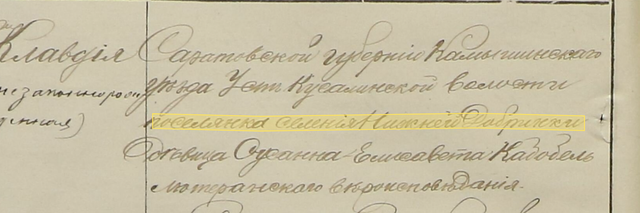 Клавдія
незаконноро
жденная)
Саратовской губерніи Камышинскаго
уѣзда Усть Кулалинской волости
поселянка селенія Нижней Добринки
дѣвица Сусанна-Елисавета Кабобель
лютеранскаго вѣроисповѣданія.